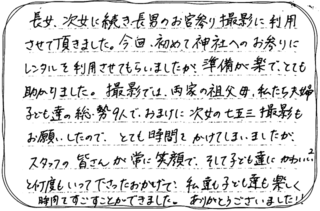 長女、次女に続き長男のお宮参り撮影に利用
させて頂きました。今回、初めて神社へのお参りに
レンタルを利用させてもらいましたが、準備が楽で、とても
助かりました。撮影では、両家の祖父母、私たち夫婦
子ども達の総勢9人で、おまけに次女の七五三撮影も
お願いしたので、とても時間をかけてしまいましたが、
スタッフの皆さんが常に笑顔で、そして子ども達にかわいい
と何度もいって下さったおかげで、私達も子ども達も楽しく
時間をすごすことができました。ありがとうございました!!